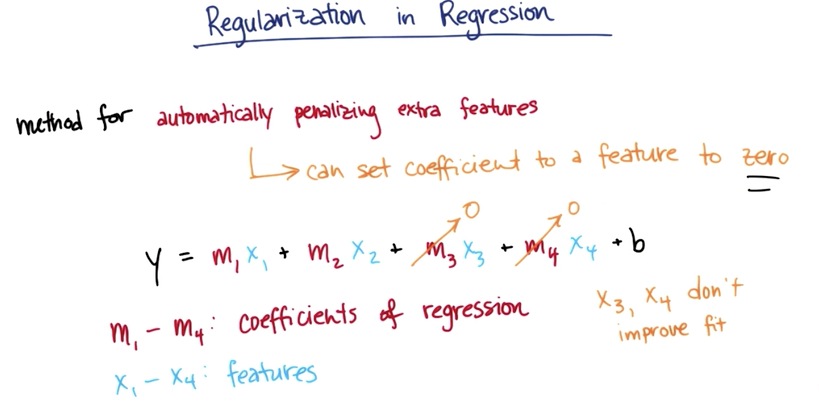 Regularization in Regression
method for automatically penalizing extra features
can set coefficient to a feature to zero
0 0
y = m₁x₁ + m₂x₂ + m₃x₃ + m₄x₄ + b
m₁ – m₄: coefficients of regression
x₃, x₄ don't
improve fit
x₁ – x₄: features